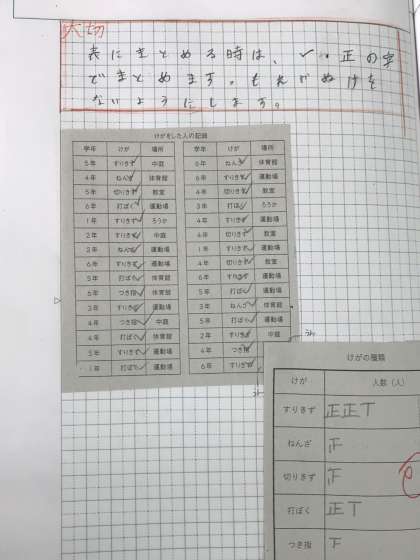 大切
表にまとめる時は、✓や正の字
でまとめます。もれがぬけを
ないようにします。
けがをした人の記録
学年 けが 場所 学年 けが 場所
5年 すりきず 中庭 6年 ねんざ 体育館
4年 ねんざ 体育館 6年 すりきず 運動場
5年 切りきず 教室 4年 切りきず 教室
6年 打ぼく 運動場 3年 打ぼく ろうか
1年 すりきず ろうか 4年 すりきず 運動場
2年 すりきず 中庭 4年 切りきず 教室
2年 ねんざ 運動場 1年 すりきず 運動場
6年 すりきず 運動場 4年 切りきず 教室
5年 打ぼく 体育館 6年 すりきず 運動場
6年 つき指 体育館 5年 打ぼく 運動場
3年 すりきず 運動場 3年 ねんざ 体育館
4年 つき指 中庭 5年 打ぼく 運動場
4年 打ぼく 体育館 2年 すりきず 中庭
5年 すりきず 運動場 4年 つき指
1年 打ぼく 運動場 6年 すりきず
けがの種類
けが 人数(人)
すりきず 正正丅
ねんざ 正
切りきず 正
打ぼく 正丅
つき指